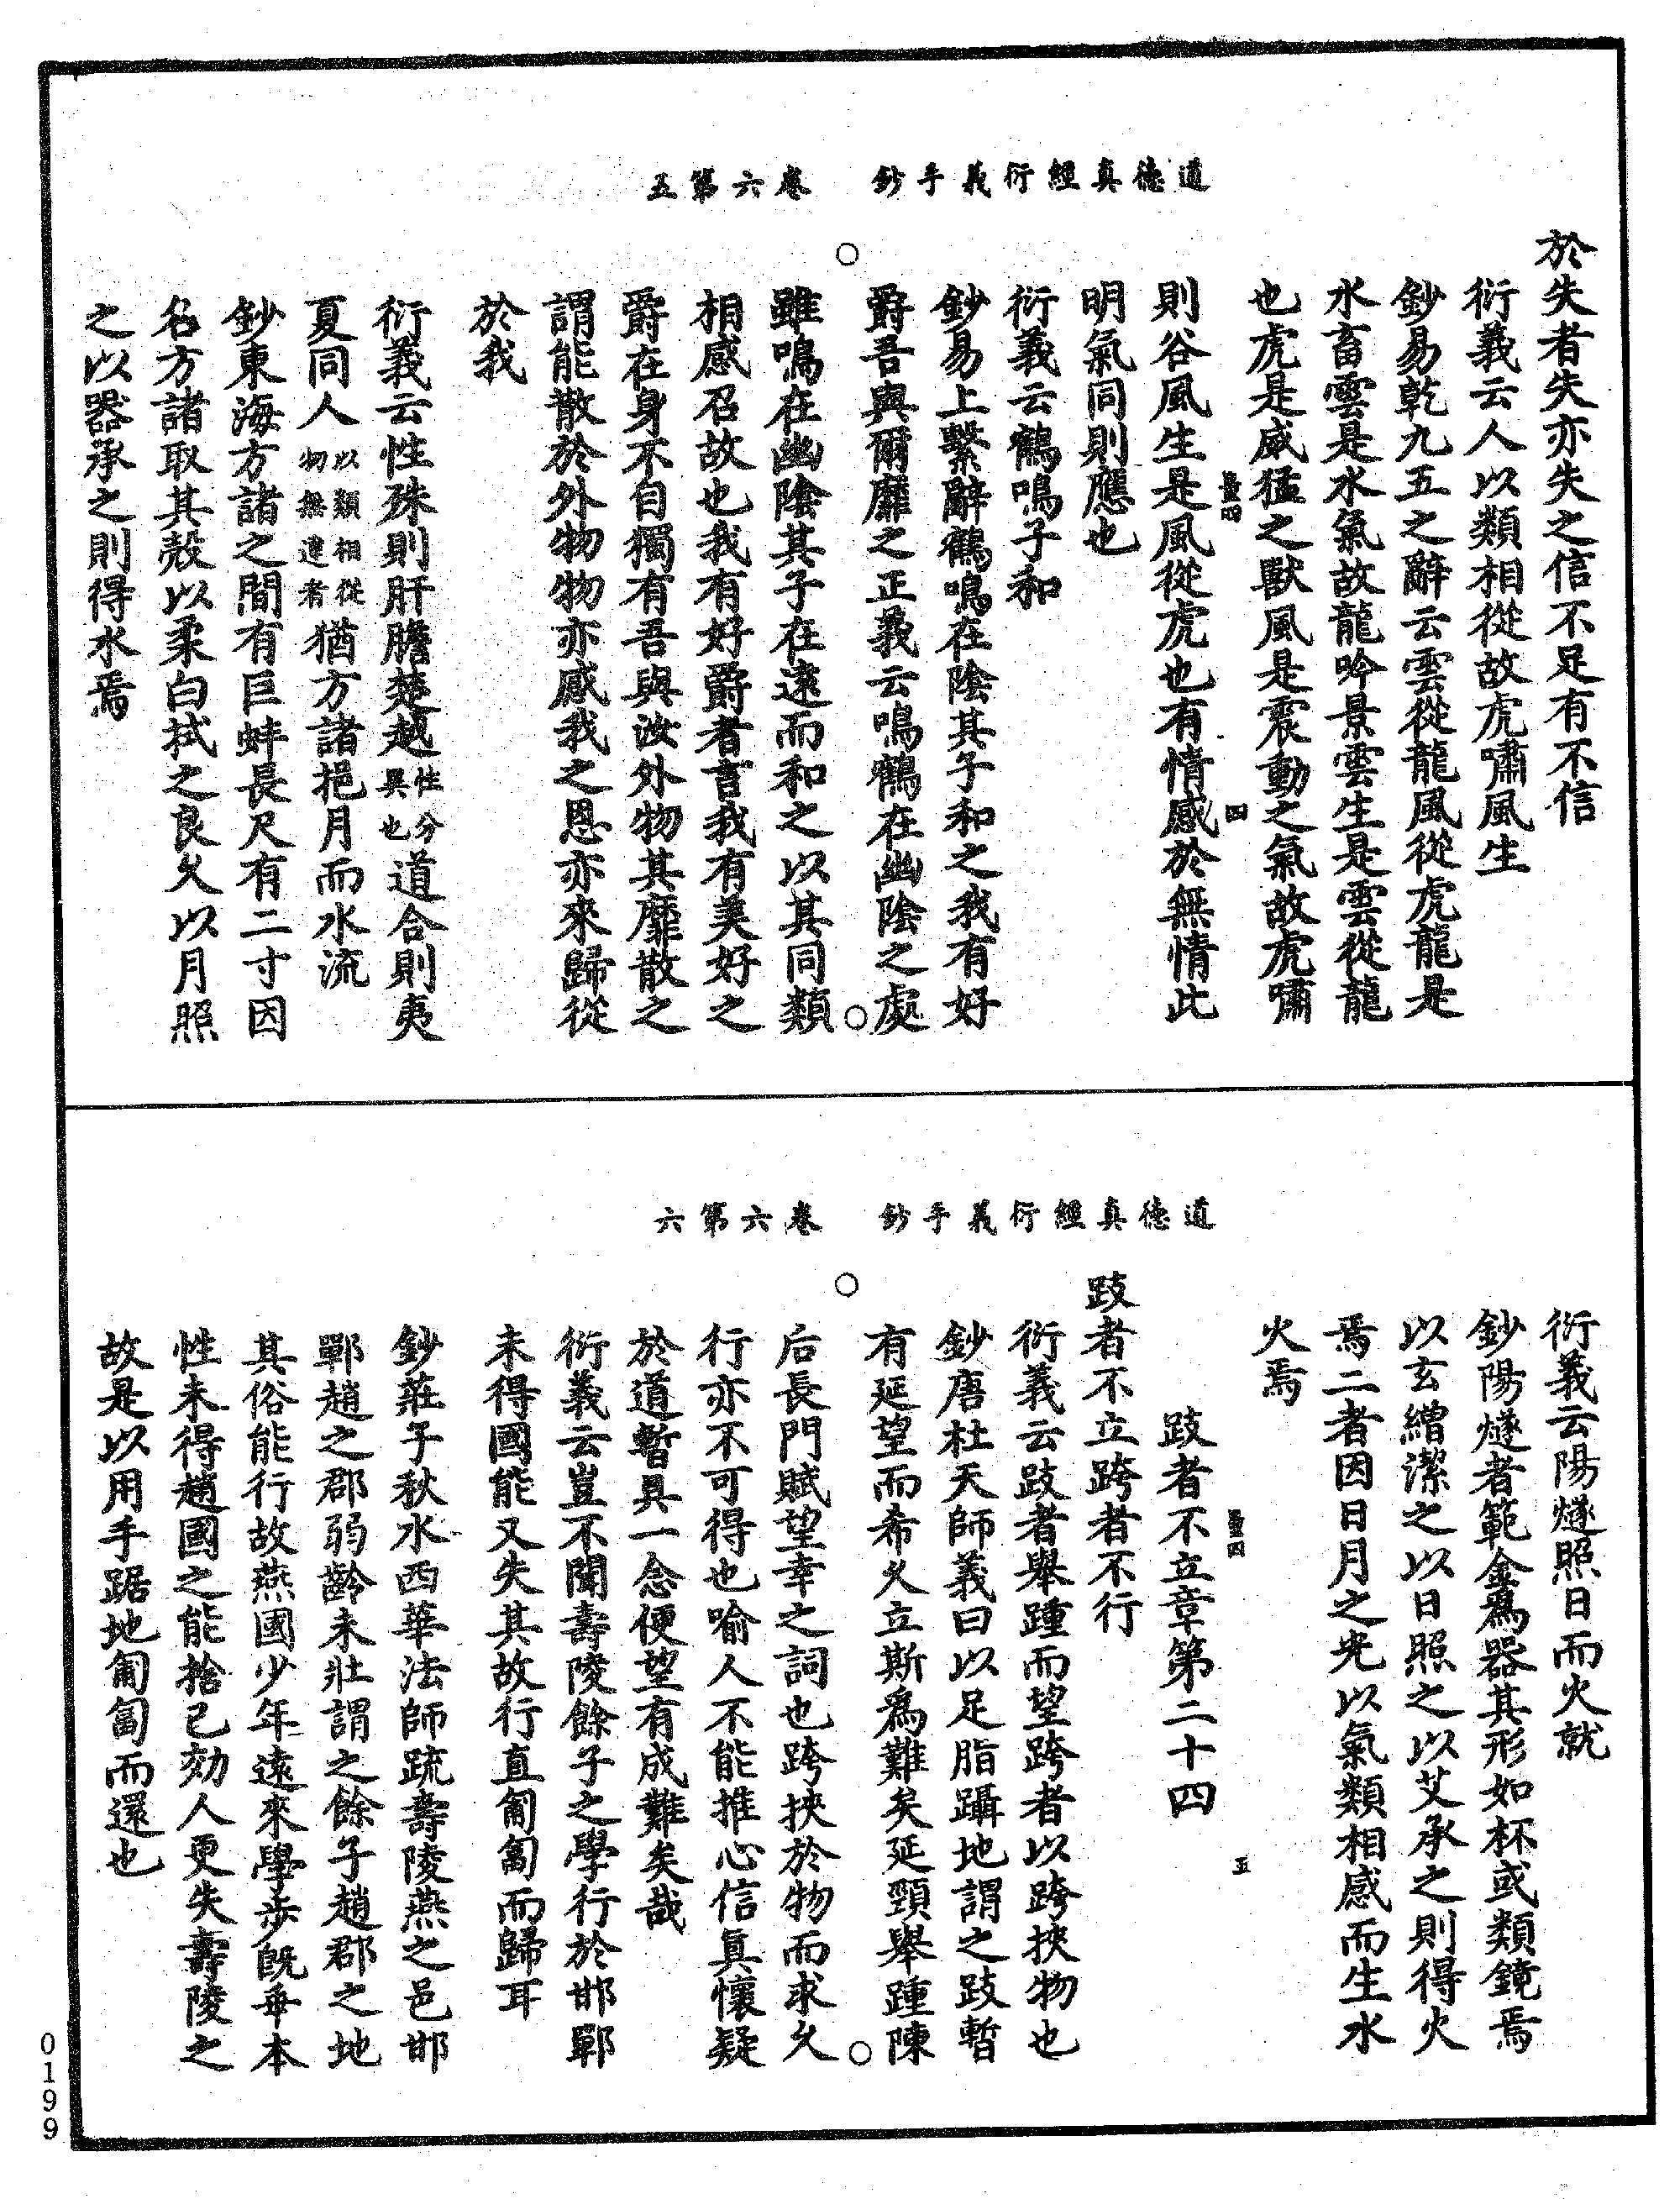 道德真經衍義手鈔　卷六第五
於失者失亦失之信不足有不信
衍義云人以類相從故虎嘯風生
鈔易乾九五之辭云雲從龍風從虎龍是
水畜雲是水氣故龍吟景雲生是雲從龍
也虎是威猛之獸風是震動之氣故虎嘯
四
則谷風生是風從虎也有情感於無情此
明氣同則應也
衍義云鶴鳴子和
鈔易上繫辭鶴鳴在陰其子和之我有好
爵吾與爾靡之正義云鳴鶴在幽陰之處
雖鳴在幽陰其子在遠而和之以其同類
相感召故也我有好爵者言我有美好之
爵在身不自獨有吾與汝外物其靡散之
謂能散於外物物亦感我之恩亦來歸從
於我
衍義云性殊則肝膽楚越性分異也道合則夷
夏同人以類相從物無違者猶方諸挹月而水流
鈔東海方諸之間有巨蚌長尺有二寸因
名方諸取其殼以柔白拭之良久以月照
之以器承之則得水焉
道德真經衍義手鈔　卷六第六
衍義云陽燧照日而火就
鈔陽燧者範金爲器其形如杯或類鏡焉
以玄繒潔之以日照之以艾承之則得火
焉二者因日月之光以氣類相感而生水
火焉
五
跂者不立章第二十四
跂者不立跨者不行
衍義云跂者舉踵而望跨者以跨挾物也
鈔唐杜天師義曰以足脂躡地謂之跂暫
有延望而希久立斯爲難矣延頸舉踵陳
后長門賦望幸之詞也跨挾於物而求久
行亦不可得也喻人不能推心信真懷疑
於道暫具一念便望有成難矣哉
衍義云豈不聞壽陵餘子之學行於邯鄲
未得國能又失其故行直匍匐而歸耳
鈔莊子秋水西華法師疏壽陵燕之邑邯
鄲趙之郡弱齡未壯謂之餘子趙郡之地
其俗能行故燕國少年遠來學步既乖本
性未得趙國之能捨己効人更失壽陵之
故是以用手踞地匍匐而還也
0199